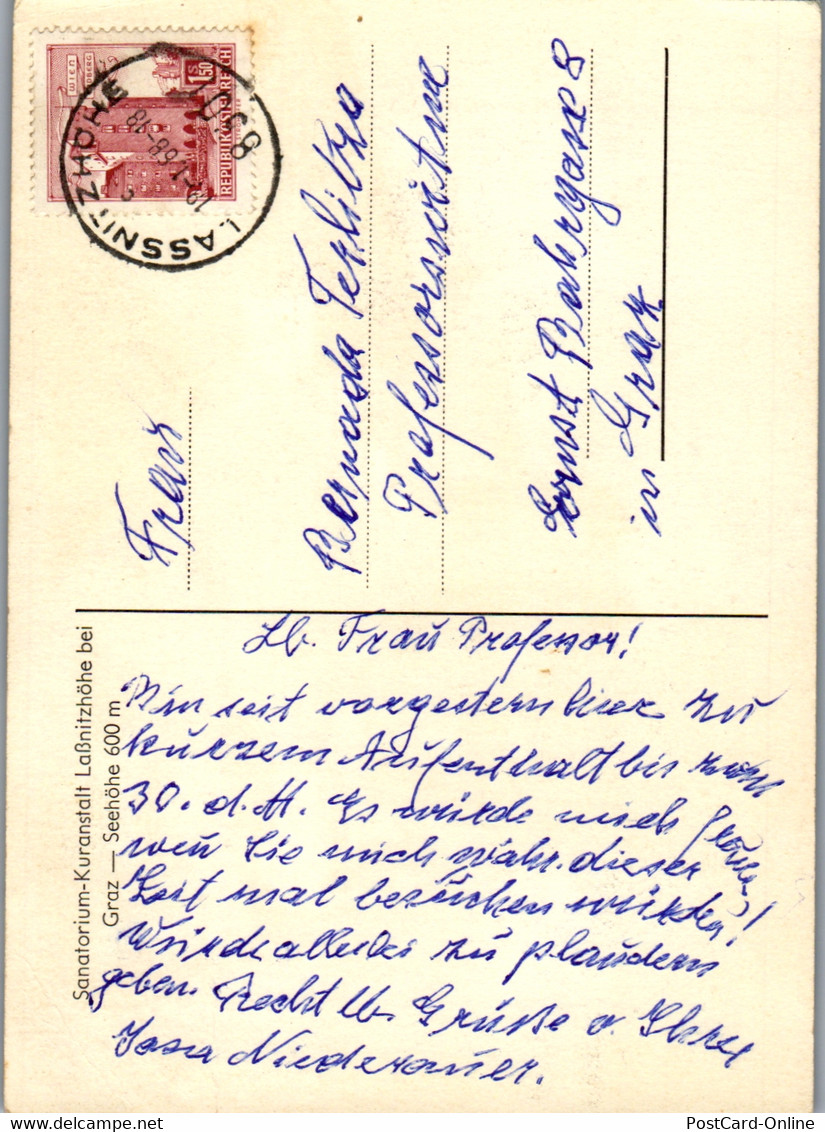 WIEN
1 S
1,50
REPUBLIK ÖSTERREICH
LASSNITZHÖHE
8301
18-1-68-18
Frau
Bernada Terlitza
Professorswitwe
Ernst Bahrgasse 8
in Graz
Sanatorium-Kuranstalt Laßnitzhöhe bei
Graz — Seehöhe 600 m
Lb. Frau Professor!
Bin seit vorgestern hier zu
kurzem Aufenthalt bis zum
30. d. M. Es würde mich freuen
wen Sie mich währ. dieser
Zeit mal besuchen würden!
Würde allerlei zu plaudern
geben. Recht lb. Grüße v. Ihrer
Niederauer.
PostCard-Online